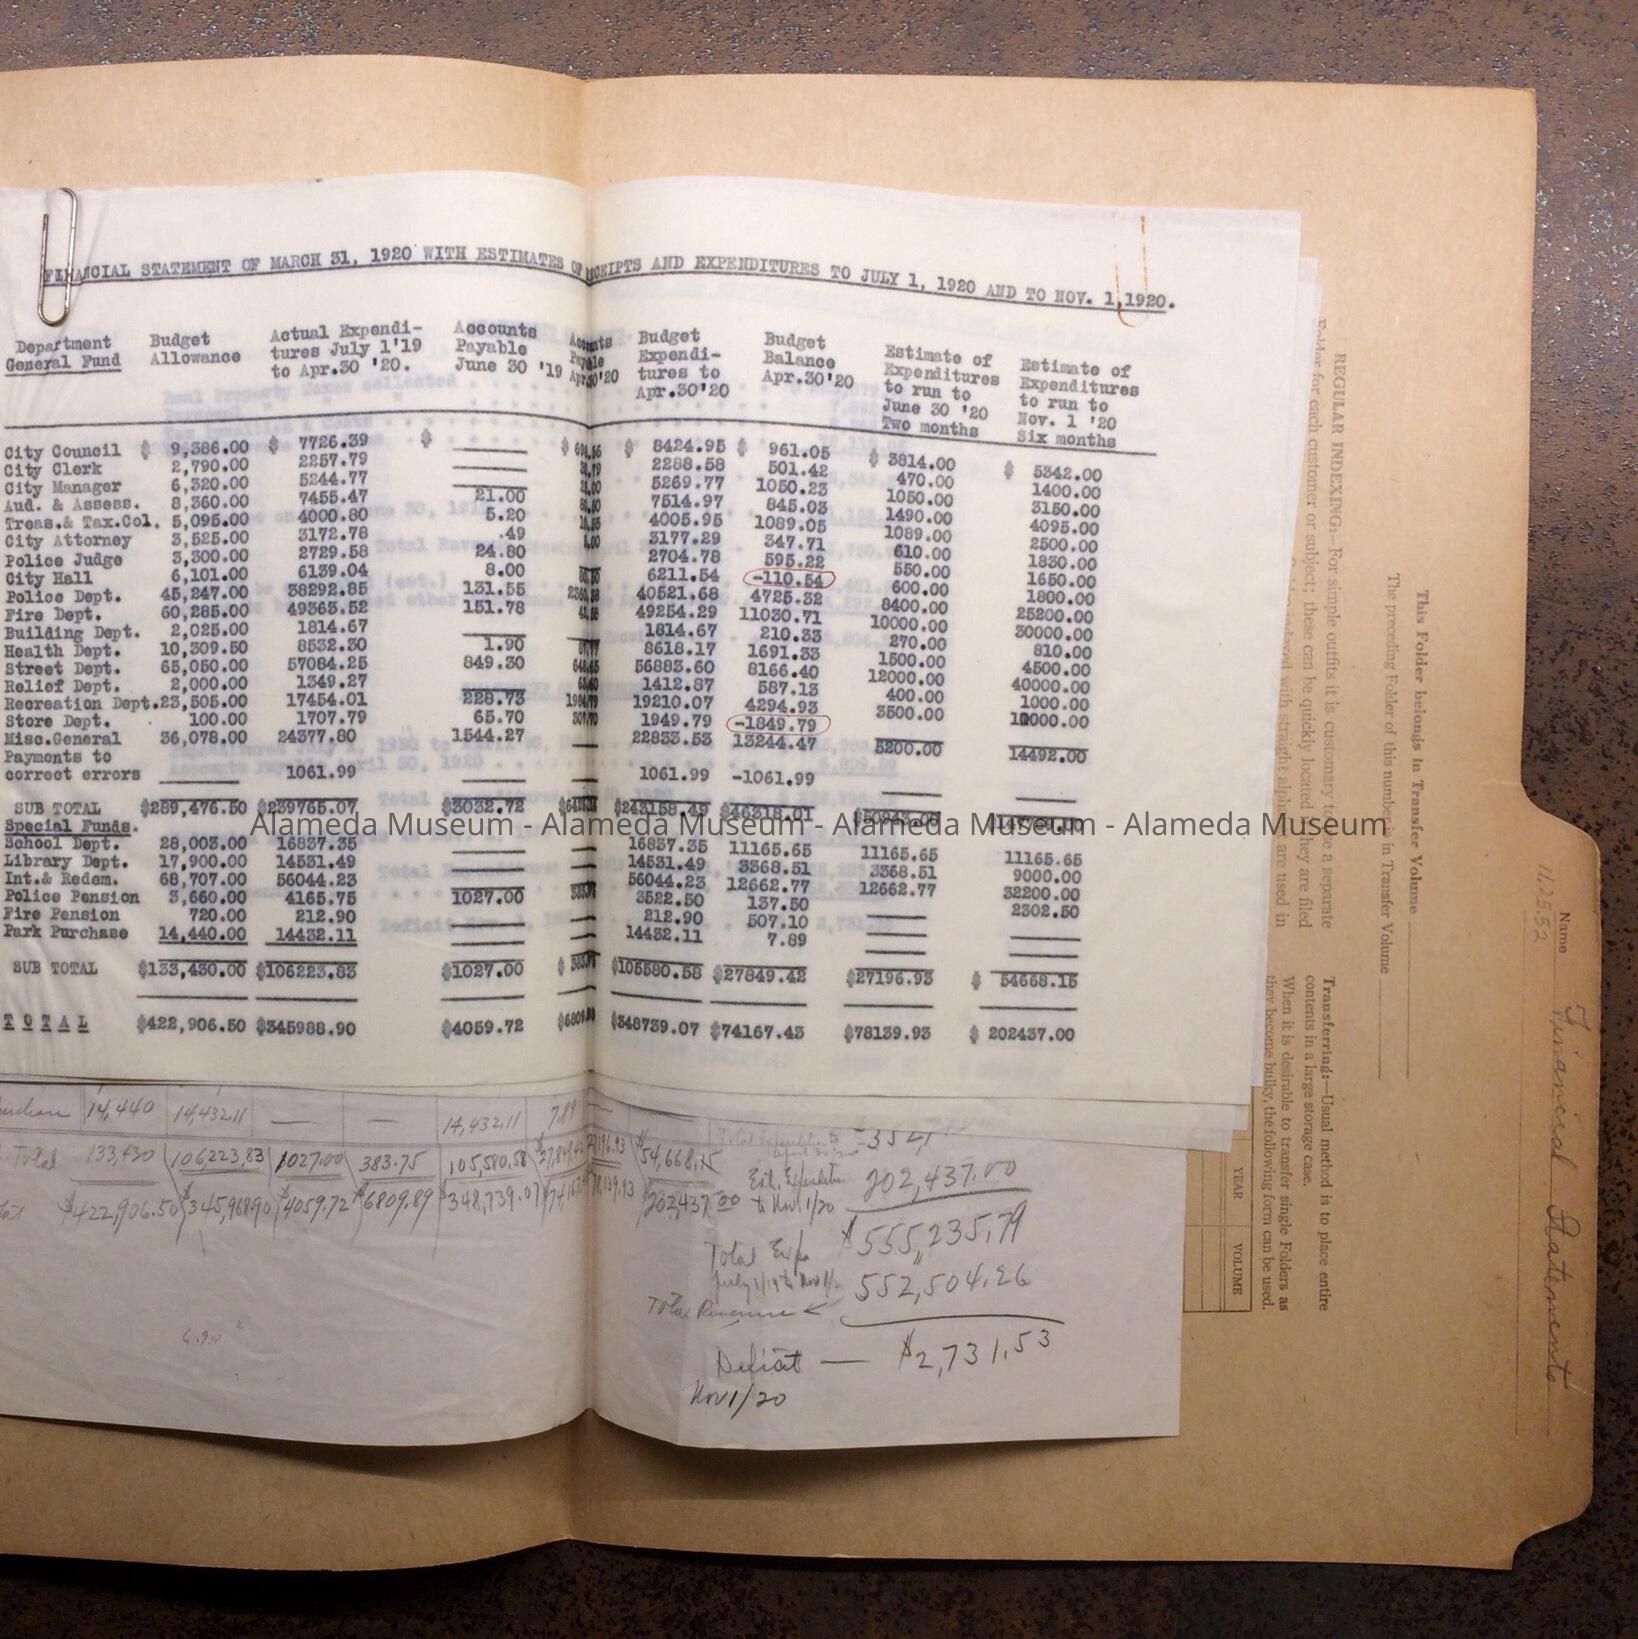 FINANCIAL STATEMENT OF MARCH 31, 1920 WITH ESTIMATES OF RECEIPTS AND EXPENDITURES TO JULY 1, 1920 AND TO NOV. 1,1920.
Department General Fund Budget Allowance Actual Expendi- tures July 1'19 to Apr.30 '20. Accounts Payable June 30 '19 Accounts Payable Apr.30'20 Budget Expendi- tures to Apr.30'20 Budget Balance Apr.30'20 Estimate of Expenditures to run to June 30 '20 Two months Estimate of Expenditures to run to Nov. 1 '20 Six months
City Council $ 9,386.00 $ 7726.39 $ $ $ 8424.95 $ 961.05 $ 3814.00 $ 5342.00
City Clerk 2,790.00 2257.79 2288.58 501.42 470.00 1400.00
City Manager 6,320.00 5244.77 5269.77 1050.23 1050.00 3150.00
Aud. & Assess. 8,360.00 7455.47 21.00 7514.97 845.03 1490.00 4095.00
Treas.& Tax.Col. 5,095.00 4000.80 5.20 4005.95 1089.05 1089.00 2500.00
City Attorney 3,525.00 3172.78 .49 3177.29 347.71 610.00 1830.00
Police Judge 3,300.00 2729.58 24.80 2704.78 595.22 550.00 1650.00
City Hall 6,101.00 6139.04 8.00 6211.54 -110.54 600.00 1800.00
Police Dept. 45,247.00 38292.85 131.55 40521.68 4725.32 8400.00 25200.00
Fire Dept. 60,285.00 49363.52 151.78 49254.29 11030.71 10000.00 30000.00
Building Dept. 2,025.00 1814.67 1814.67 210.33 270.00 810.00
Health Dept. 10,309.50 8532.30 1.90 8618.17 1691.33 1500.00 4500.00
Street Dept. 65,050.00 57084.25 849.30 56883.60 8166.40 12000.00 40000.00
Relief Dept. 2,000.00 1349.27 1412.87 587.13 400.00 1000.00
Recreation Dept. 23,505.00 17454.01 228.73 19210.07 4294.93 3500.00 10000.00
Store Dept. 100.00 1707.79 65.70 1949.79 -1849.79
Misc.General 36,078.00 24377.80 1544.27 22833.53 13244.47 5200.00 14492.00
Payments to
correct errors 1061.99 1061.99 -1061.99
SUB TOTAL $289,476.50 $239765.07 $3032.72 $243158.49 $46318.01
Special Funds.
School Dept. 28,003.00 16837.35 16837.35 11165.65 11165.65 11165.65
Library Dept. 17,900.00 14531.49 14531.49 3368.51 3368.51 9000.00
Int.& Redem. 68,707.00 56044.23 56044.23 12662.77 12662.77 32200.00
Police Pension 3,660.00 4165.75 1027.00 3522.50 137.50 2302.50
Fire Pension 720.00 212.90 212.90 507.10
Park Purchase 14,440.00 14432.11 14432.11 7.89
SUB TOTAL $133,430.00 $106223.83 $1027.00 $105580.58 $27849.42 $27196.93 $ 54668.15
TOTAL $422,906.50 $345988.90 $4059.72 $348739.07 $74167.43 $78139.93 $ 202437.00
Alameda Museum - Alameda Museum - Alameda Museum - Alameda Museum
14,440 14,432.11 — — 14,432.11 7.89 —
Total 133,430 106,223,83 1027.00 383.75 105,580.58 $54,668.15
$422,906.50 $345,988.90 $4059.72 $6809.89 $348,739.07 $202,437.00
Est. Expenditures to Nov. 1/20 202,437.00
$555,235.79
Total Exp.
July 1/19 to Nov 1/20
552,504.26
Total Revenue
Deficit — $2,731.53
Nov 1/20
REGULAR INDEXING:—For simple outfits it is customary to use a separate
Folder for each customer or subject; these can be quickly located as they are filed
Transferring:—Usual method is to place entire
contents in a large storage case.
When it is desirable to transfer single Folders as
they become bulky, the following form can be used.
YEAR
VOLUME
This Folder belongs in Transfer Volume
The preceding Folder of this number is in Transfer Volume
Name
11.25.52
Financial Statements